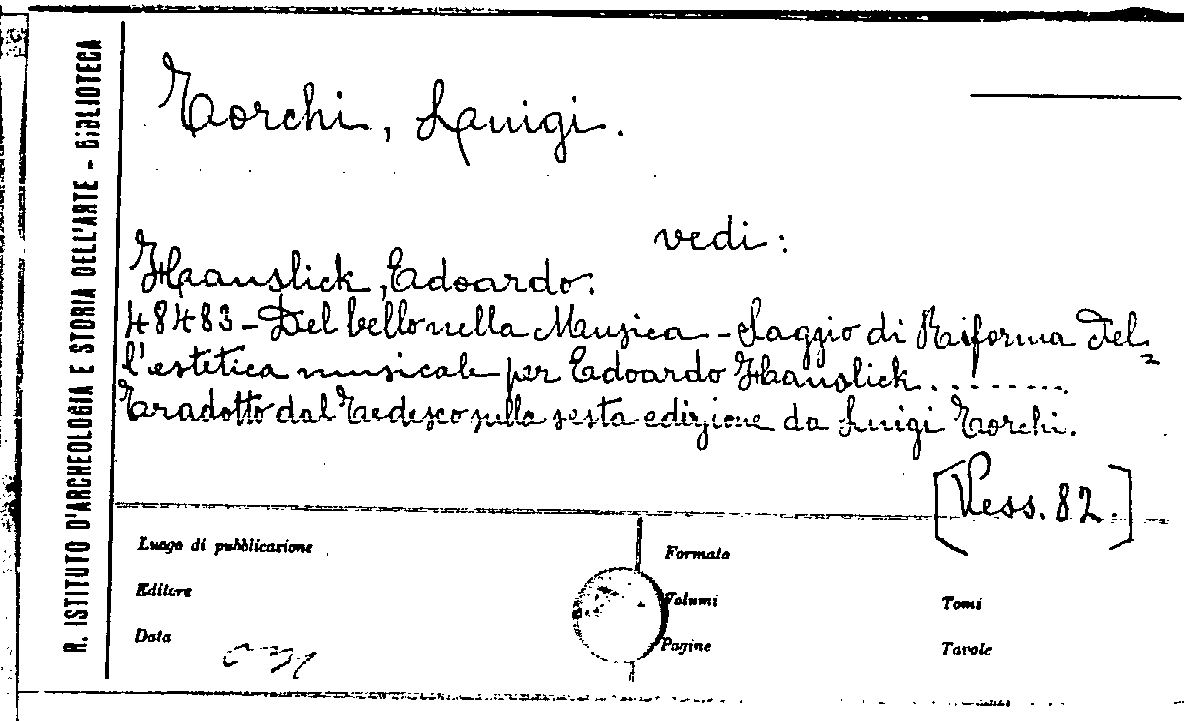 R. ISTITUTO D'ARCHEOLOGIA E STORIA DELL'ARTE - BIBLIOTECA
Torchi, Luigi.
vedi:
Hanslick, Edoardo.
48483 - Del bello nella Musica - Saggio di Riforma del=
l'estetica musicale per Edoardo Hanslick..........
Tradotto dal Tedesco sulla sesta edizione da Luigi Torchi.
[Vess. 82.]
Luogo di pubblicazione
Formato
Editore
Volumi
Tomi
Data
Pagine
Tavole